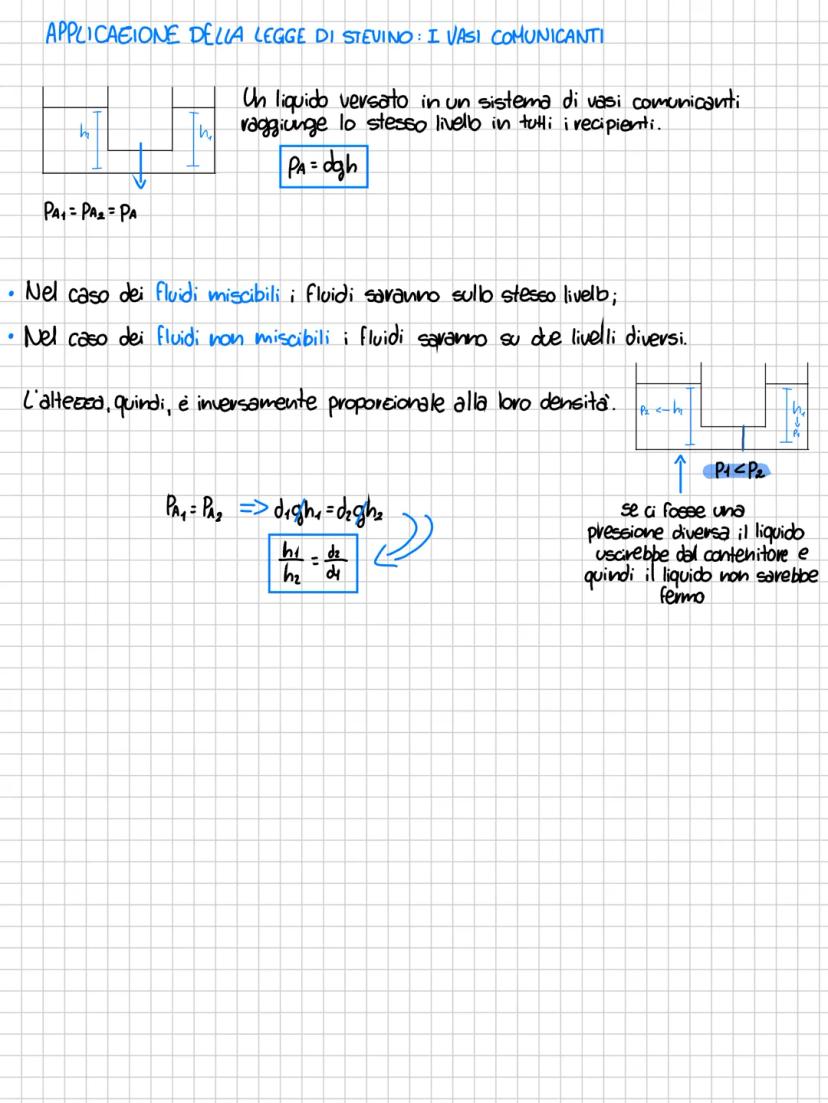 APPLICAZIONE DELLA LEGGE DI STEVINO: I VASI COMUNICANTI
Un liquido versato in un sistema di vasi comunicanti
raggiunge lo stesso livello in tutti i recipienti.
h h₁
PA = dgh
PA₁ = PA₂ = PA
• Nel caso dei fluidi miscibili i fluidi saranno sullo stesso livello;
• Nel caso dei fluidi non miscibili i fluidi saranno su due livelli diversi.
L'altezza, quindi, è inversamente proporzionale alla loro densità.
P₂ <- h₁ h₁ -> P₁
P1 < P2
PA₁ = PA₂ => d₁gh₁ = d₂gh₂
h₁/h₂ = d₂/d₁
se ci fosse una
pressione diversa il liquido
uscirebbe dal contenitore e
quindi il liquido non sarebbe
fermo